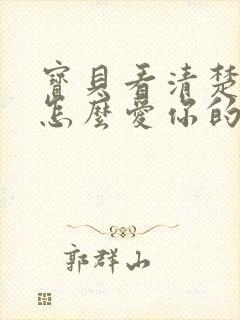 寶貝看清楚
怎麼愛你的
郭群山